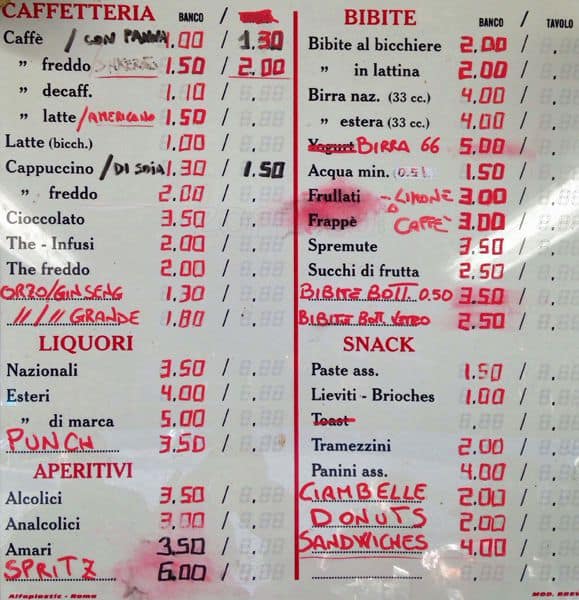 CAFFETTERIA BANCO /
Caffè / CON PANNA 1.00 / 1.30
" freddo 1.50 / 2.00
" decaff. 1.10 /
" latte / AMERICANO 1.50 /
Latte (bicch.) 1.00 /
Cappuccino / DI SOIA 1.30 / 1.50
" freddo 2.00 /
Cioccolato 3.50 /
The - Infusi 2.00 /
The freddo 2.00 /
ORZO/GINSENG 1.30 /
" / " GRANDE 1.80 /
LIQUORI
Nazionali 3.50 /
Esteri 4.00 /
" di marca 5.00 /
PUNCH 3.50 /
APERITIVI
Alcolici 3.50 /
Analcolici 3.00 /
Amari 3.50 /
SPRITZ 6.00 /
Alfaplastic - Roma
BIBITE BANCO / TAVOLO
Bibite al bicchiere 2.00 /
" in lattina 2.00 /
Birra naz. (33 cc.) 4.00 /
" estera (33 cc.) 4.00 /
Yogurt BIRRA 66 5.00 /
Acqua min. (0.5 l) 1.50 /
Frullati - LIMONE 3.00 /
Frappè CAFFÈ 3.00 /
Spremute 3.50 /
Succhi di frutta 2.50 /
BIBITE BOTT. 0.50 3.50 /
BIBITE BOTT. VETRO 2.50 /
SNACK
Paste ass. 1.50 /
Lieviti - Brioches 1.00 /
Toast /
Tramezzini 2.00 /
Panini ass. 4.00 /
CIAMBELLE 2.00 /
DONUTS 2.00 /
SANDWICHES 4.00 /
/
MOD. BREV